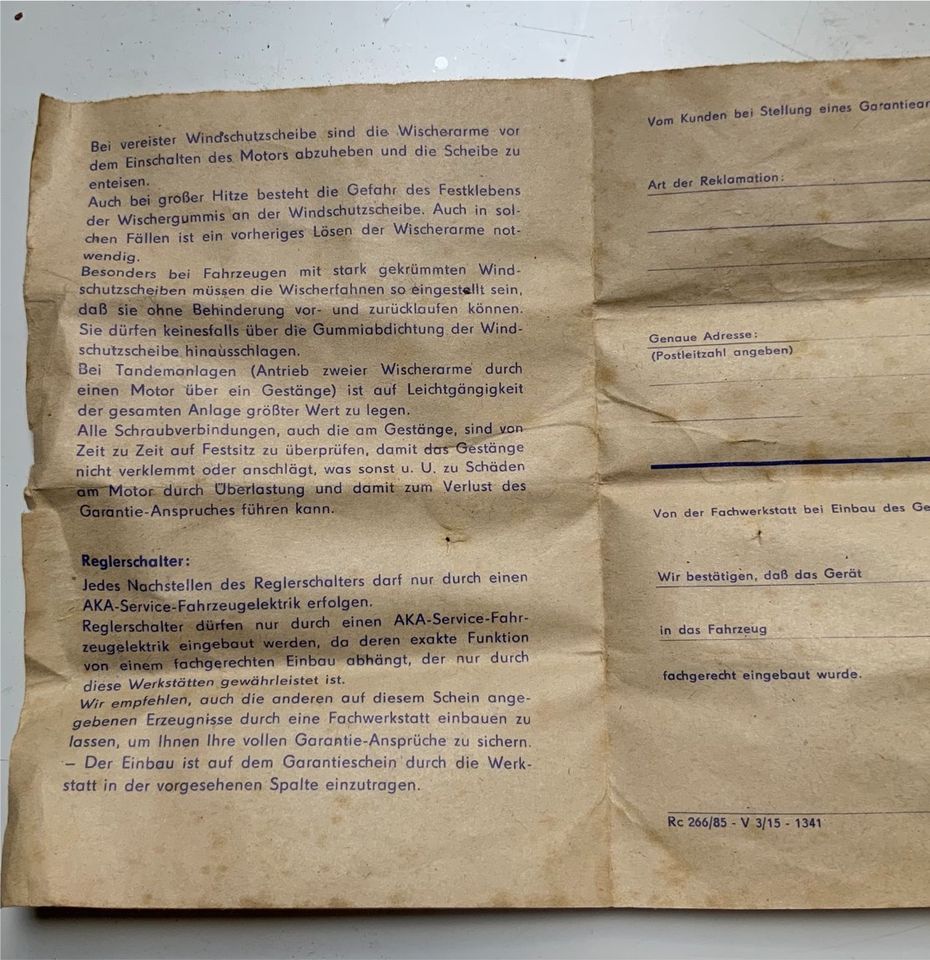 Bei vereister Windschutzscheibe sind die Wischerarme vor
dem Einschalten des Motors abzuheben und die Scheibe zu
enteisen.
Auch bei großer Hitze besteht die Gefahr des Festklebens
der Wischergummis an der Windschutzscheibe. Auch in sol-
chen Fällen ist ein vorheriges Lösen der Wischerarme not-
wendig.
Besonders bei Fahrzeugen mit stark gekrümmten Wind-
schutzscheiben müssen die Wischerfahnen so eingestellt sein,
daß sie ohne Behinderung vor- und zurücklaufen können.
Sie dürfen keinesfalls über die Gummiabdichtung der Wind-
schutzscheibe hinausschlagen.
Bei Tandemanlagen (Antrieb zweier Wischerarme durch
einen Motor über ein Gestänge) ist auf Leichtgängigkeit
der gesamten Anlage größter Wert zu legen.
Alle Schraubverbindungen, auch die am Gestänge, sind von
Zeit zu Zeit auf Festsitz zu überprüfen, damit das Gestänge
nicht verklemmt oder anschlägt, was sonst u. U. zu Schäden
am Motor durch Überlastung und damit zum Verlust des
Garantie-Anspruches führen kann.
Reglerschalter:
Jedes Nachstellen des Reglerschalters darf nur durch einen
AKA-Service-Fahrzeugelektrik erfolgen.
Reglerschalter dürfen nur durch einen AKA-Service-Fahr-
zeugelektrik eingebaut werden, da deren exakte Funktion
von einem fachgerechten Einbau abhängt, der nur durch
diese Werkstätten gewährleistet ist.
Wir empfehlen, auch die anderen auf diesem Schein ange-
gebenen Erzeugnisse durch eine Fachwerkstatt einbauen zu
lassen, um Ihnen Ihre vollen Garantie-Ansprüche zu sichern.
– Der Einbau ist auf dem Garantieschein durch die Werk-
statt in der vorgesehenen Spalte einzutragen.
Vom Kunden bei Stellung eines Garantiear
Art der Reklamation:
Genaue Adresse:
(Postleitzahl angeben)
Von der Fachwerkstatt bei Einbau des Ge
Wir bestätigen, daß das Gerät
in das Fahrzeug
fachgerecht eingebaut wurde.
Rc 266/85 - V 3/15 - 1341